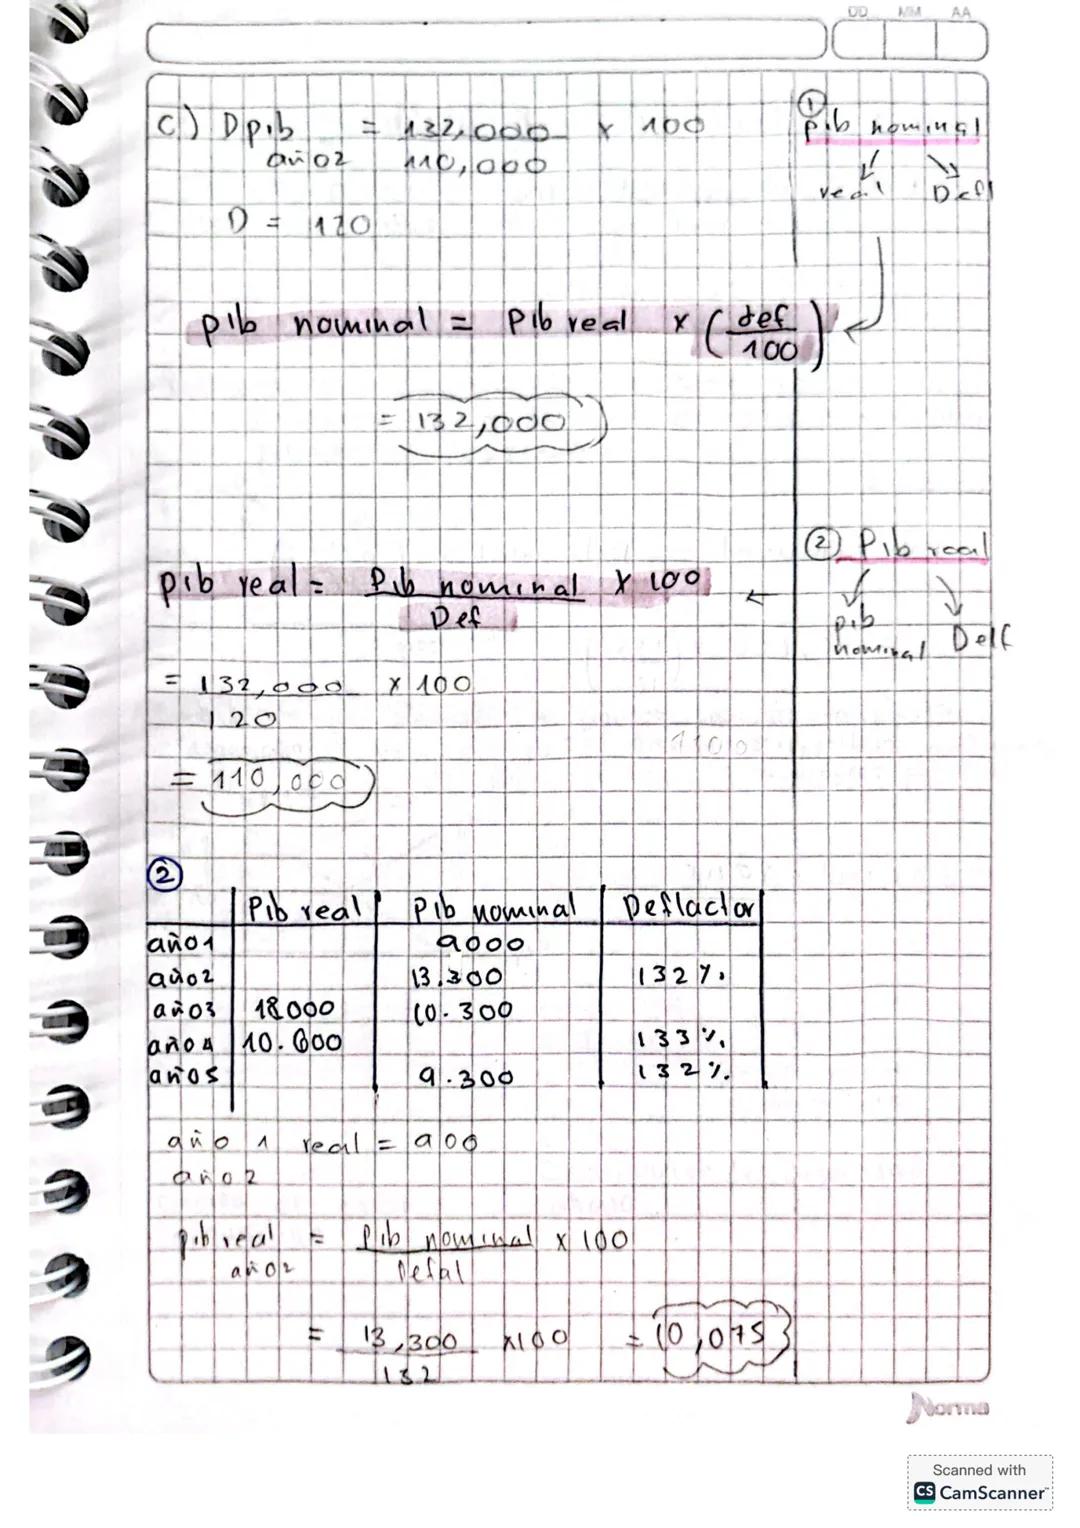 DD MM AA
c) Dpib = 132,000 x 100
año2 110,000
D = 120
① pib nominal
real Defl
pib nominal = Pib real x (def
100)
= 132,000
② Pib real
pib nominal Delf
pib real = Pib nominal x 100
Def
= 132,000 x 100
120
= 110,000
②
Pib real Pib nominal Deflactor
año1 9000
año2 13.300 132%
año3 18000 10.300
año4 10.600 133%
año5 9.300 132%
año 1 real = 900
año2
pib real = Pib nominal x 100
año2 Defal
= 13,300 x100 = 10,075
132
Norma
Scanned with
CS CamScanner